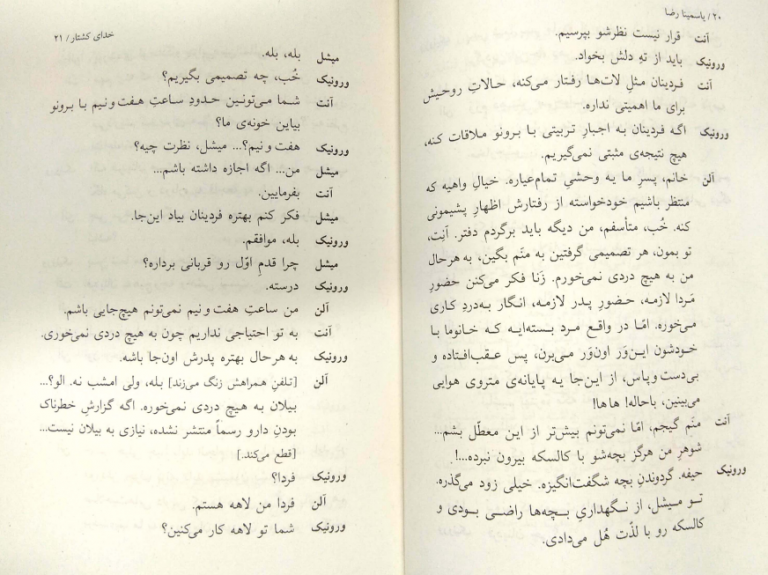 ۲۰ / یاسمینا رضا
آنت قرار نیست نظرشو بپرسیم.
ورونیک باید از تهِ دلش بخواد.
آنت فردینان مثلِ لات‌ها رفتار می‌کنه، حالاتِ روحیش
برای ما اهمیتی نداره.
ورونیک اگه فردینان به اجبارِ تربیتی با برونو ملاقات کنه،
هیچ نتیجه‌ی مثبتی نمی‌گیریم.
آلن خانم، پسرِ ما یه وحشیِ تمام‌عیاره. خیالِ واهیه که
منتظر باشیم خودخواسته از رفتارش اظهارِ پشیمونی
کنه. خُب، متأسفم، من دیگه باید برگردم دفتر. آنِت،
تو بمون، هر تصمیمی گرفتین به منَم بگین، به‌هرحال
من به هیچ دردی نمی‌خورم. زَنا فکر می‌کنن حضورِ
مَردا لازمه، حضورِ پدر لازمه، انگار به‌دردِ کاری
می‌خوره. امّا در واقع مرد بسته‌ایه که خانوما با
خودشون این‌وَر اون‌وَر می‌برن، پس عقب‌افتاده و
بی‌دست‌وپاس، از این‌جا یه پایانه‌ی متروی هوایی
می‌بینین، باحاله! هاها!
آنت منَم گیجم، امّا نمی‌تونم بیش‌تر از این معطّل بشم...
شوهرِ من هرگز بچه‌شو با کالسکه بیرون نبرده...!
ورونیک حیفه. گردوندنِ بچه شگفت‌انگیزه. خیلی زود می‌گذره.
تو میشل، از نگهداریِ بچه‌ها راضی بودی و
کالسکه رو با لذّت هُل می‌دادی.
خدای کشتار / ۲۱
میشل بله، بله.
ورونیک خُب، چه تصمیمی بگیریم؟
آنت شما می‌تونین حدودِ ساعتِ هفت‌ونیم با برونو
بیاین خونه‌ی ما؟
ورونیک هفت‌ونیم؟... میشل، نظرت چیه؟
میشل من... اگه اجازه داشته باشم...
آنت بفرمایین.
میشل فکر کنم بهتره فردینان بیاد این‌جا.
ورونیک بله، موافقم.
میشل چرا قدمِ اوّل رو قربانی برداره؟
ورونیک درسته.
آلن من ساعتِ هفت‌ونیم نمی‌تونم هیچ‌جایی باشم.
آنت به تو احتیاجی نداریم چون به هیچ دردی نمی‌خوری.
ورونیک به‌هرحال بهتره پدرش اون‌جا باشه.
آلن [تلفنِ همراهش زنگ می‌زند] بله، ولی امشب نه. الو؟...
بیلان به هیچ دردی نمی‌خوره. اگه گزارشِ خطرناک
بودنِ دارو رسماً منتشر نشده، نیازی به بیلان نیست...
[قطع می‌کند.]
ورونیک فردا؟
آلن فردا من لاهه هستم.
ورونیک شما تو لاهه کار می‌کنین؟